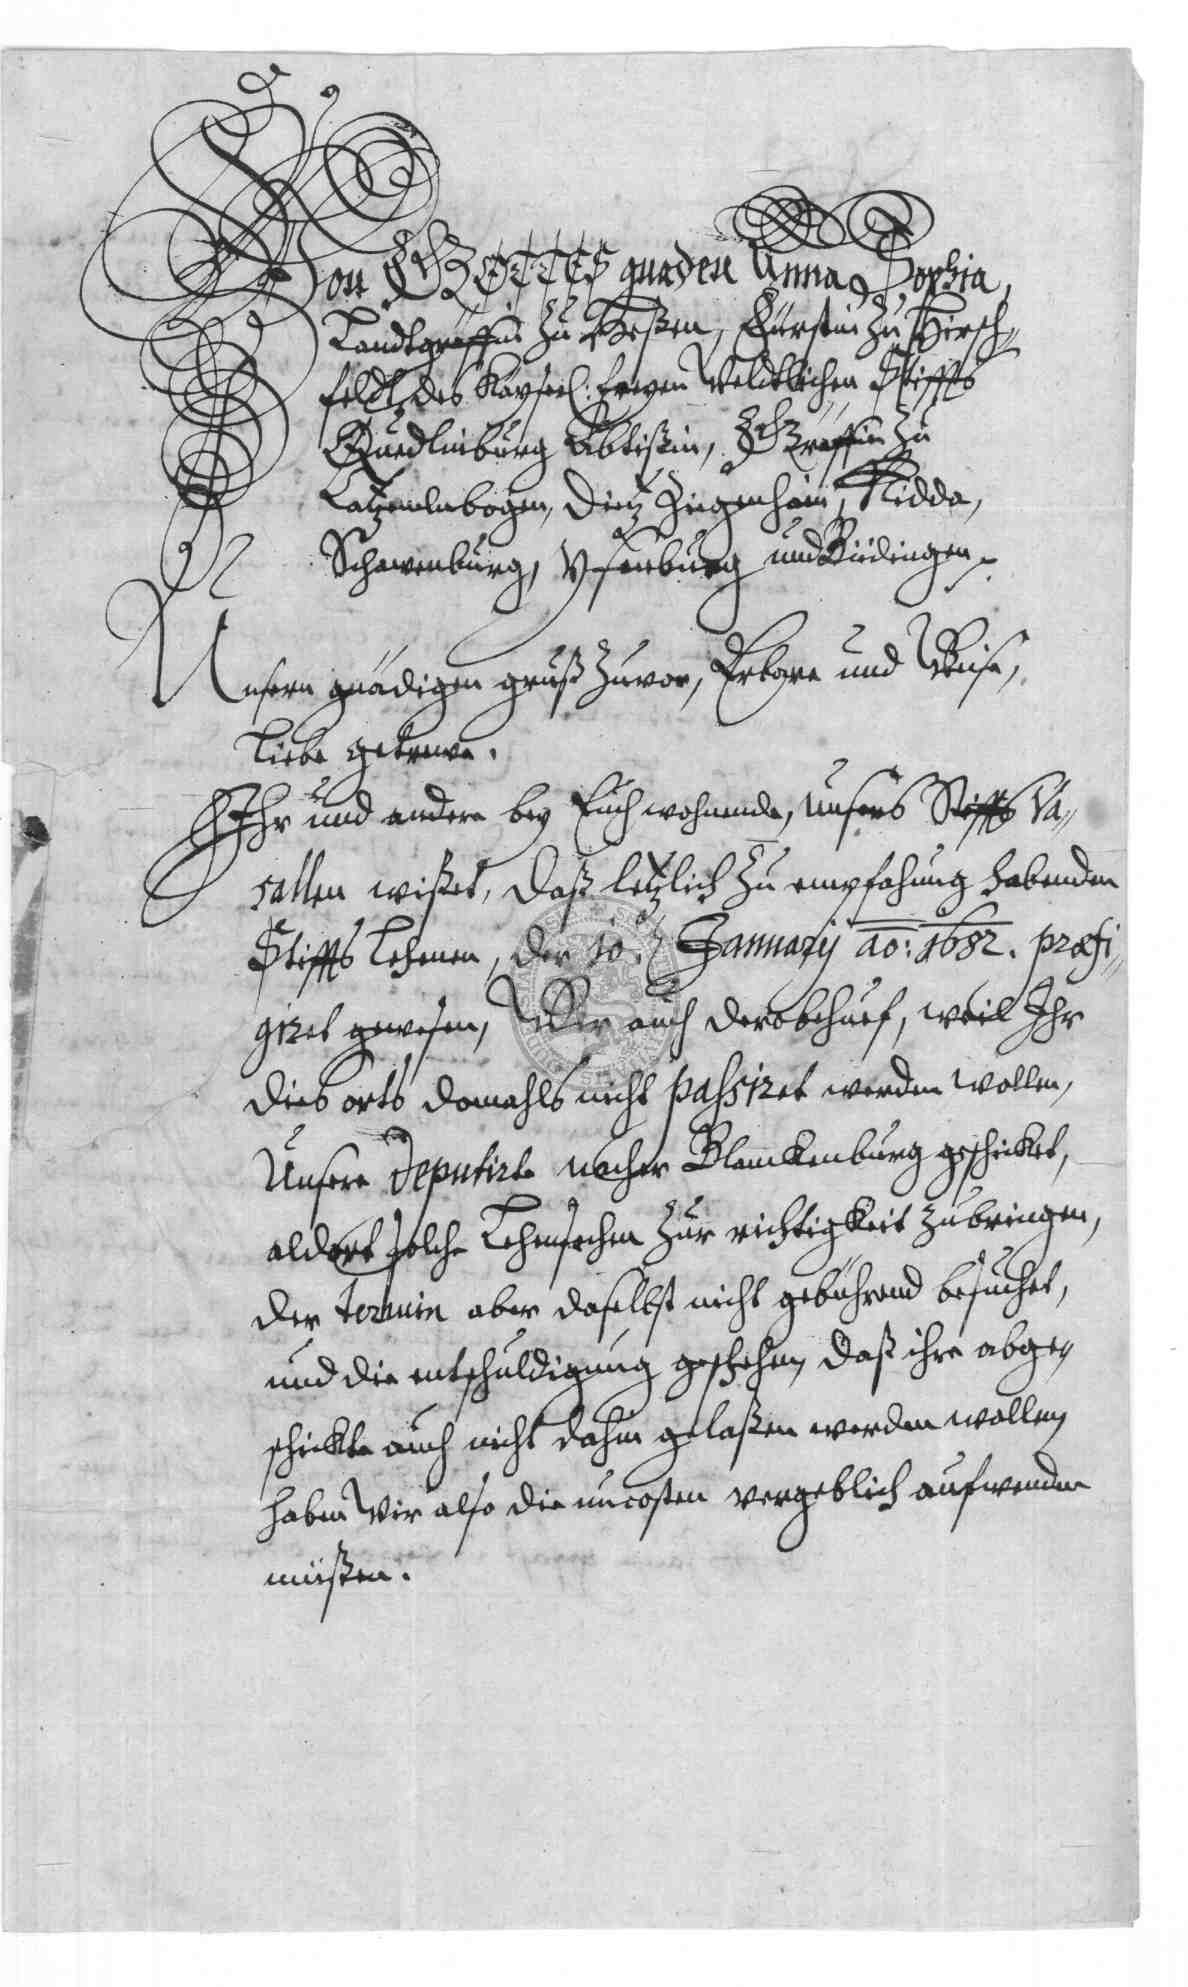 Von GOTTES gnaden Anna Sophia,
Landtgräffin zu Heßen, Fürstin zu Hirsch„
feldt, des Kayserl: freyen Weldtlichen Stiffts
Quedlinburg Äbtißin, Gräffin zu
Catzenelnbogen, Dietz Ziegenhain, Nidda,
Schawenburg, Ysenburg und Büdingen
Unsern gnädigen gruß zuvor, Erbare und Weise,
Liebe getrewe.
Ihr und andere bey Euch wohnende, unsers Stiffts Va„
sallen wißet, daß letzlich zu empfahung habenden
Stiffts Lehenen, der 10. Januarij ao: 1682. præfi„
giret gewesen, Wir auch derobehuef, weil Ihr
dies orts domahls nicht passiret werden wollen,
Unsere Deputirte nacher Blanckenburg geschicket,
aldort solche Lehensachen zur richtigkeit zubringen,
der termin aber daselbst nicht gebührend besuchet,
und die entschuldigung geschehen, daß ihre abge„
schickte auch nicht dahin gelaßen werden wollen,
haben Wir also die uncosten vergeblich aufwenden
müßen.